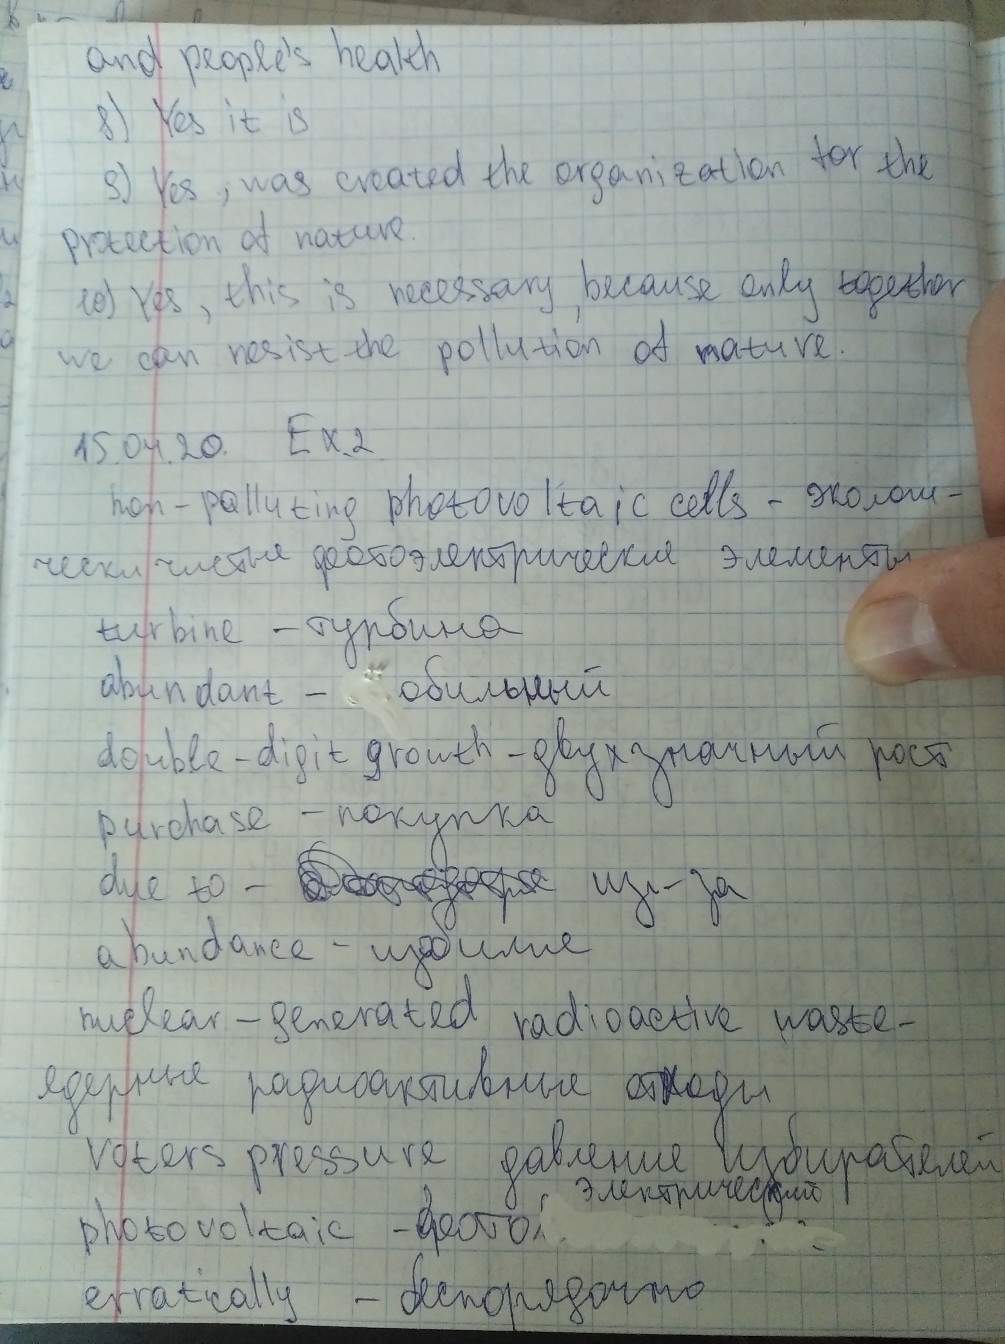 and people's health
8) Yes it is
9) Yes, was created the organization for the
protection of nature.
10) Yes, this is necessary, because only together
we can resist the pollution of nature.
15.04.20. Ex.2
non-polluting photovoltaic cells - экологи-
чески чистые фотоэлектрические элементы
turbine - турбина
abundant - обильный
double-digit growth - двухзначный рост
purchase - покупка
due to - из-за
abundance - изобилие
nuclear-generated radioactive waste-
ядерные радиоактивные отходы
voters pressure давление избирателей
электрический
photovoltaic - фото
erratically - беспорядочно